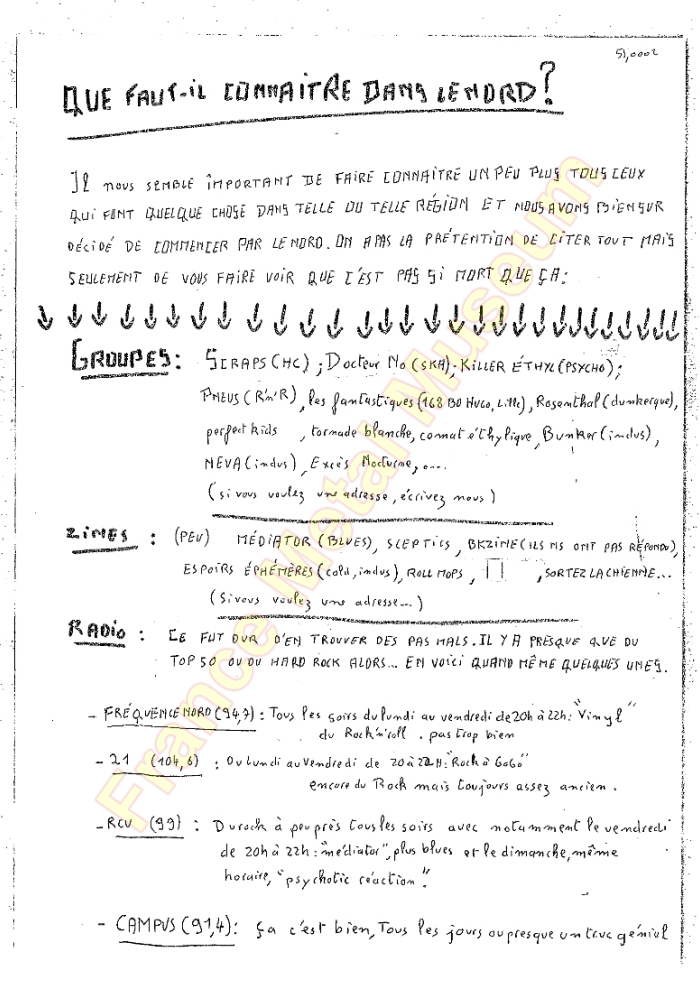 51,0002
QUE FAUT-IL CONNAITRE DANS LE NORD?
Il nous SEMBLE IMPORTANT DE FAIRE CONNAITRE UN PEU PLUS TOUS CEUX
QUI FONT QUELQUE CHOSE DANS TELLE OU TELLE RÉGION ET NOUS AVONS BIEN SUR
DÉCIDÉ DE COMMENCER PAR LE NORD. ON A PAS LA PRÉTENTION DE CITER TOUT MAIS
SEULEMENT DE VOUS FAIRE VOIR QUE C'EST PAS SI MORT QUE ÇA:
GROUPES: SCRAPS (HC) ; Docteur No (SKA), KILLER ÉTHYL (PSYCHO);
PNEUS (R'n'R), les fantastiques (168 BD HUGO, Lille), Rosenthal (dunkerque),
perfect kids , tornade blanche, comat éthylique, Bunker (indus),
NEVA (indus), Excès Nocturne,....
(si vous voulez une adresse, écrivez nous)
ZINES : (PEU) MÉDIATOR (BLUES), SCEPTICS, BKZINE (ILS NS ONT PAS RÉPONDU),
ESPOIRS ÉPHÉMÈRES (cold, indus), ROLL MOPS, , SORTEZ LA CHIENNE...
(Si vous voulez une adresse...)
RADIO : CE FUT DUR D'EN TROUVER DES PAS MALS. IL Y A PRESQUE QUE DU
TOP 50 OU DU HARD ROCK ALORS... EN VOICI QUAND MÊME QUELQUES UNES.
- FRÉQUENCE NORD (94,7) : Tous les soirs du lundi au vendredi de 20h à 22h: "Vinyl"
du Rock'n'roll . pas trop bien
- 21 (104,6) : Du lundi au vendredi de 20 à 22H: "Rock à Gogo"
encore du Rock mais toujours assez ancien.
- RCV (99) : Du rock à peu près tous les soirs avec notamment le vendredi
de 20h à 22h: "médiator", plus blues et le dimanche, même
horaire, "psychotic réaction".
- CAMPUS (91,4): ça c'est bien, Tous les jours ou presque un truc génial
France Metal Museum